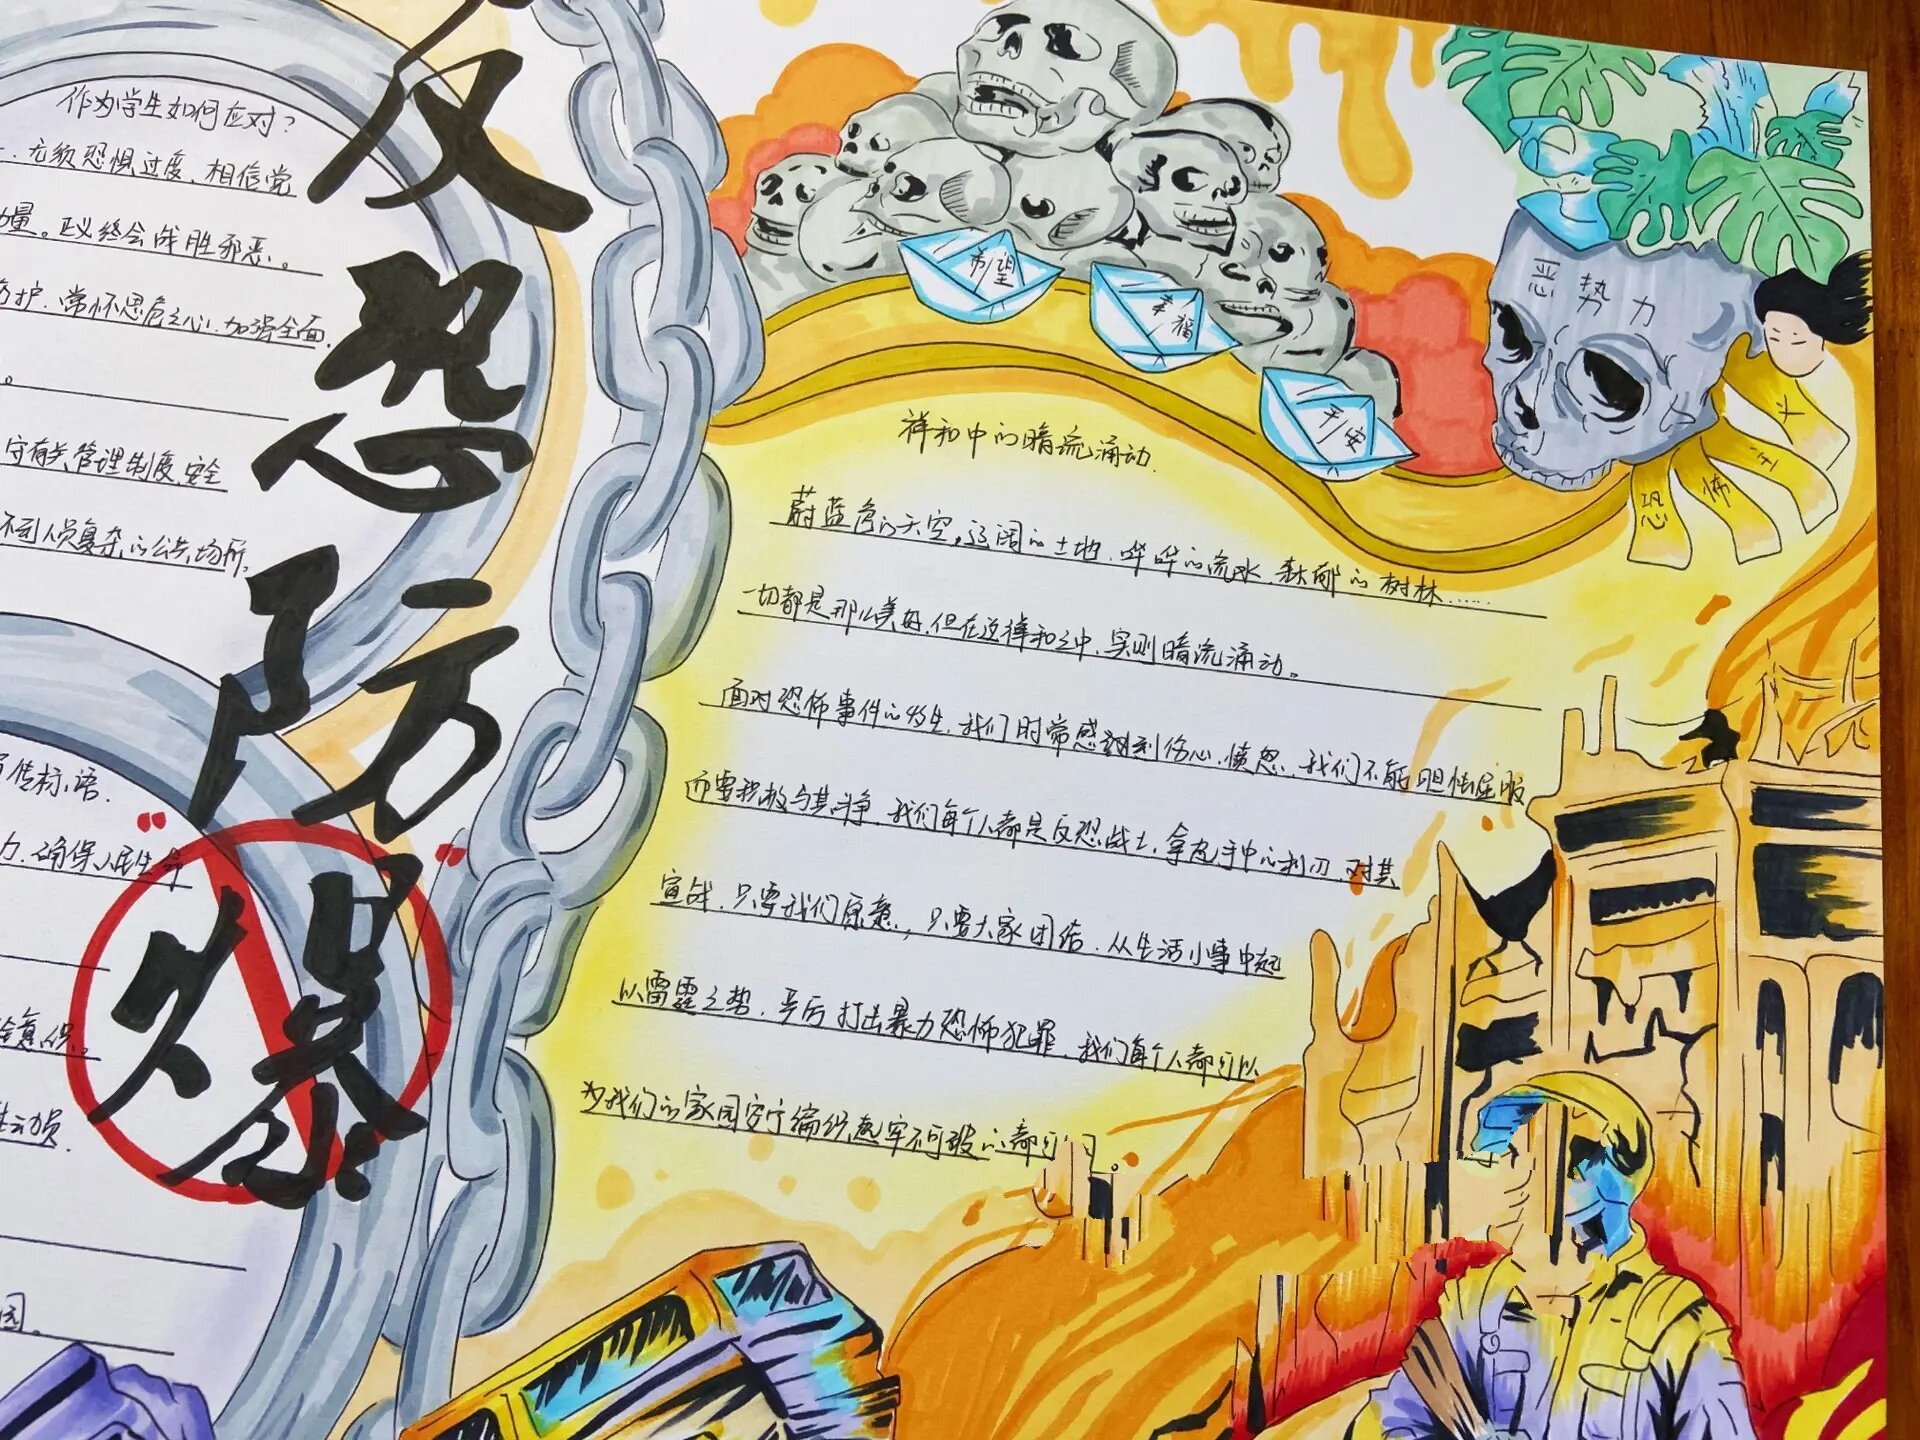 作为学生如何应对?
、无须恐惧过度、相信党
力量。正义终会战胜邪恶。
防护.常怀思危之心.加强全面
。
守有关管理制度.安全
不到人员复杂的公共场所.
反恐防“爆”
传标语.
力.确保人民生命
动员.
园。
希望
幸福
平安
恶势力
恐怖主义
祥和中的暗流涌动.
蔚蓝色的天空。辽阔的土地.哗哗的流水.郁的树林......
一切都是那么美好.但在这祥和之中.实则暗流涌动。
面对恐怖事件的发生.我们时常感到伤心.愤怒.我们不能胆怯屈服
而要积极与其斗争.我们每个人都是反恐战士.拿起手中的利刃.对其
宣战.只要我们愿意,只要大家团结.从生活小事中起
以雷霆之势.严厉打击暴力恐怖犯罪.我们每个人都可以
为我们的家园安宁编织起牢不可破的